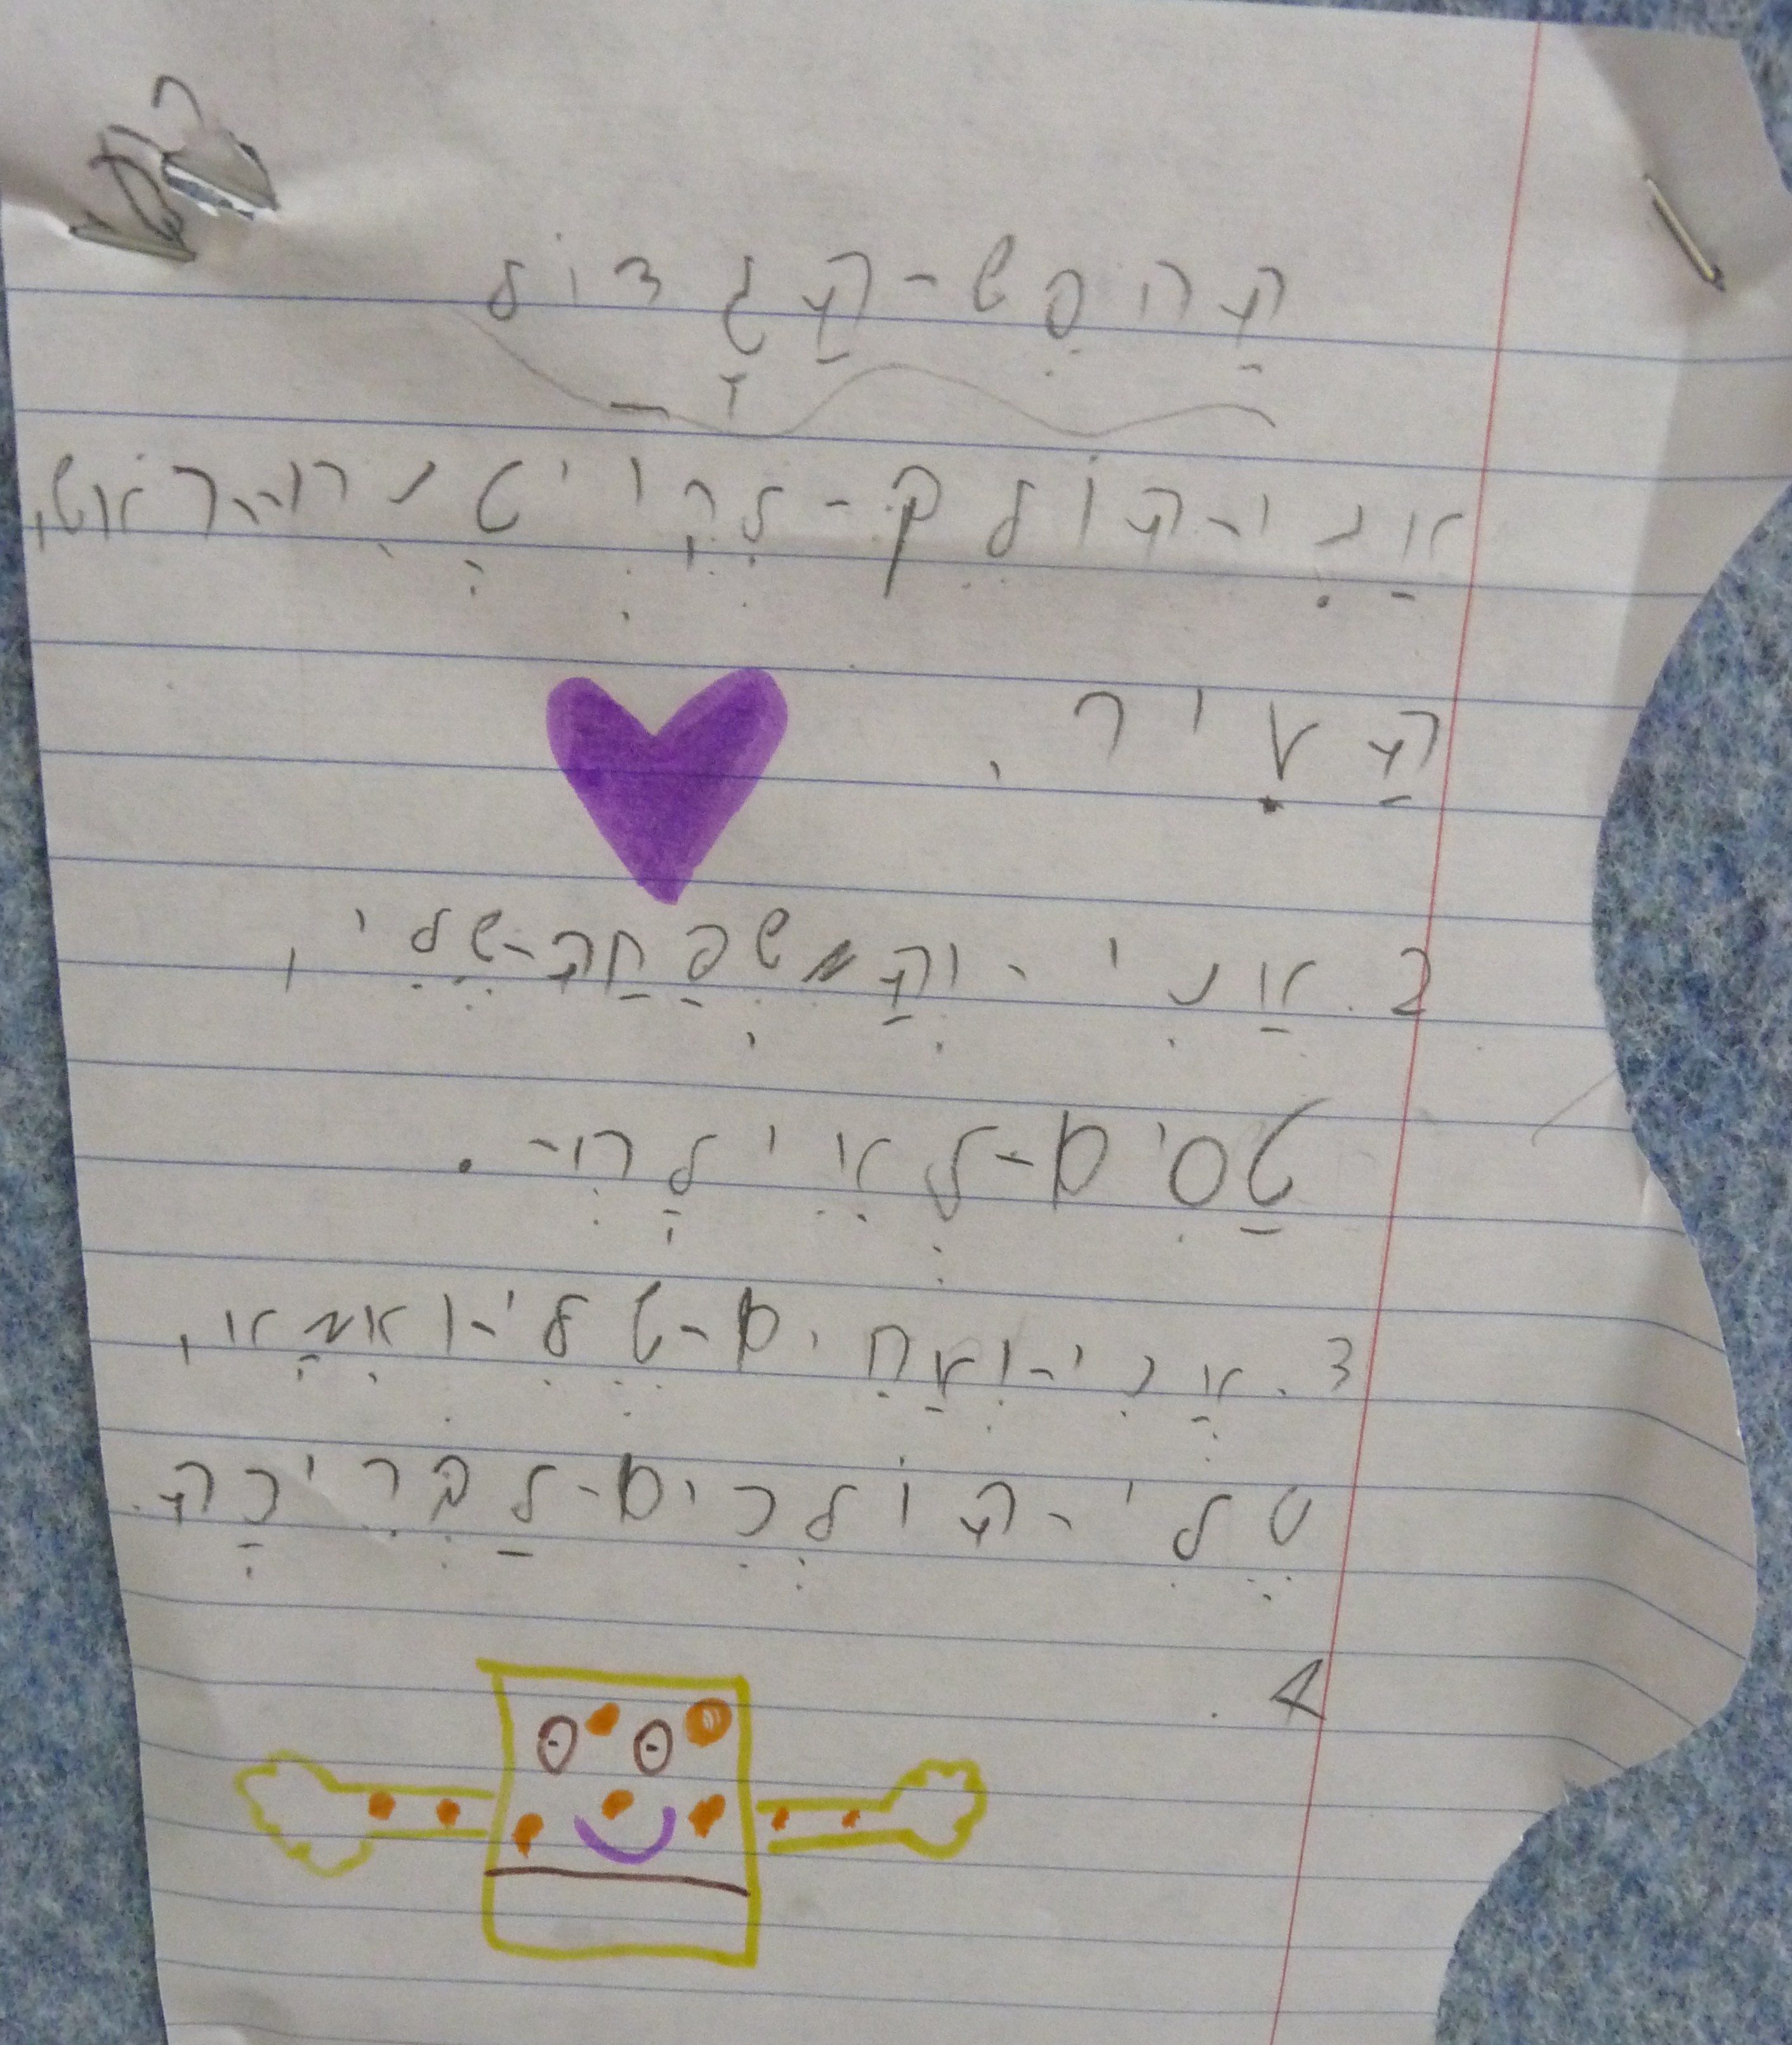 הַחֹפֶשׁ-הַגָּדוֹל
אֲנִי-הוֹלֵךְ-לְקֵיְטָנַת-ראש,
הַעִיר.
2. אֲנִי-וְהַמִּשְׁפַּחַה-שֶׁלִי,
טַסִים-לְאֵילָת-.
3. אֲנִי-וְאַחִים-שֶׁלִי-וְאִמָא,
שֶׁלִי-הוֹלְכִים-לַבְּרֵיכָה.
4.